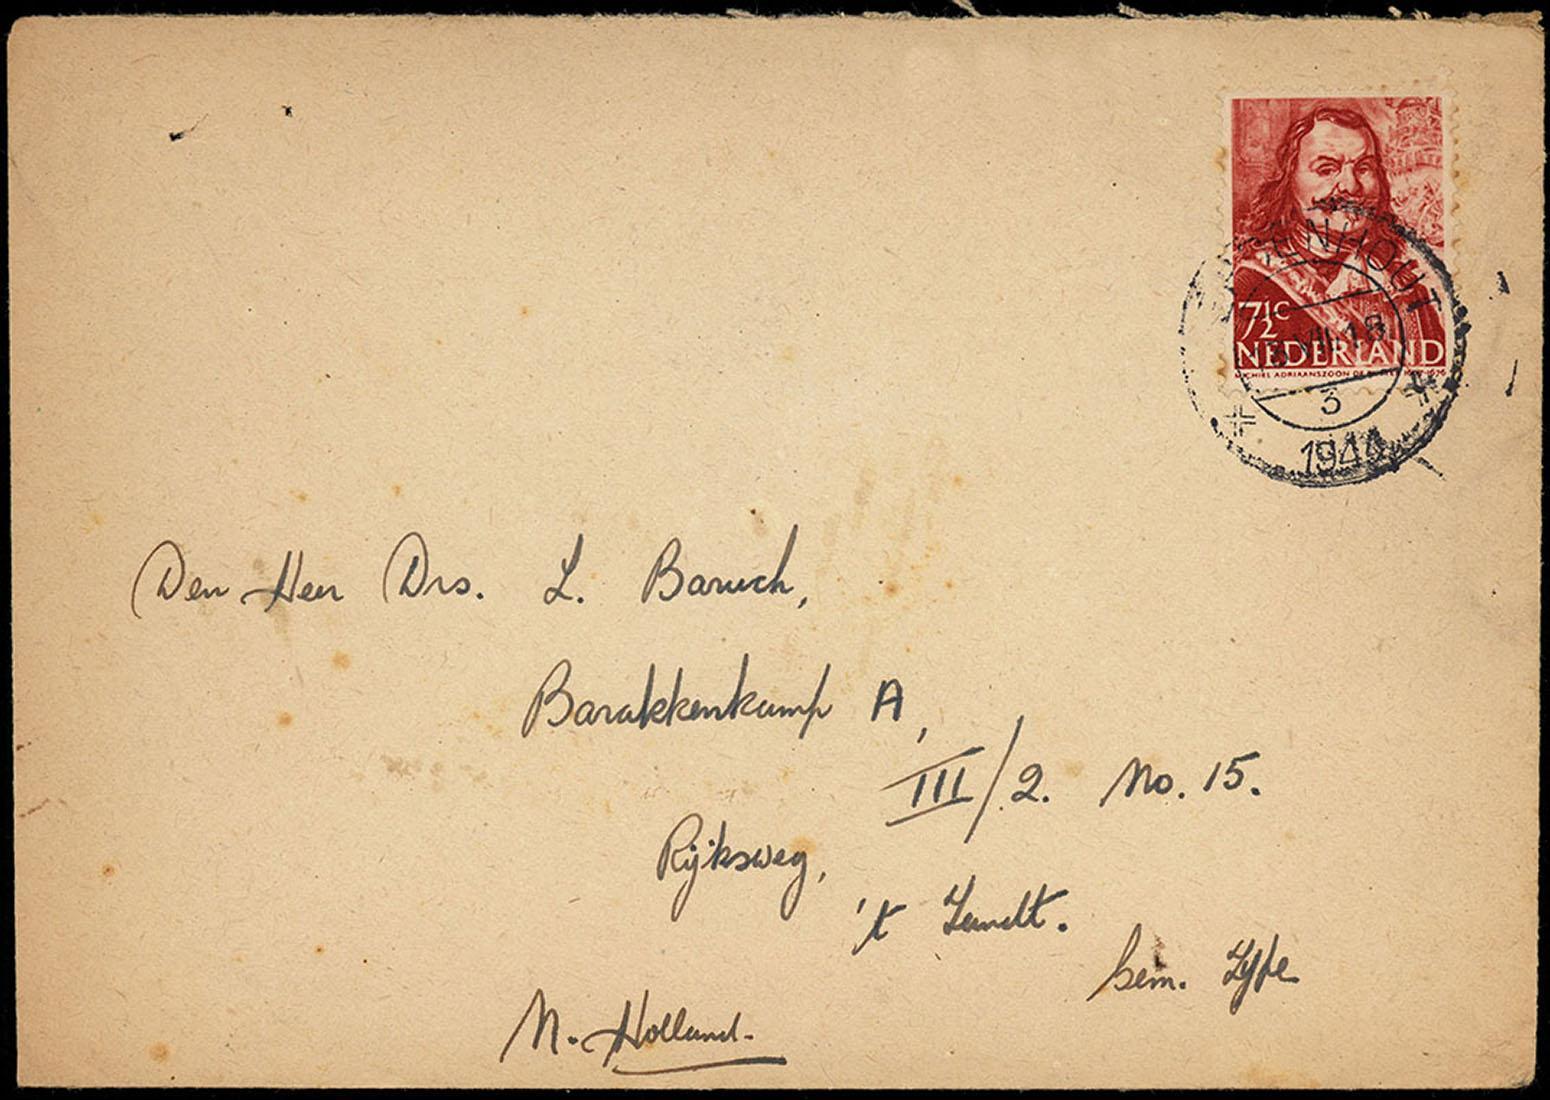 7½c
NEDERLAND
MICHIEL ADRIAANSZOON DE
VIII.18
3
1944
Den Heer Drs. L. Baruch,
Barakkenkamp A,
III/2. No. 15.
Rijksweg,
't Zandt.
Gem. Zijpe
N. Holland.